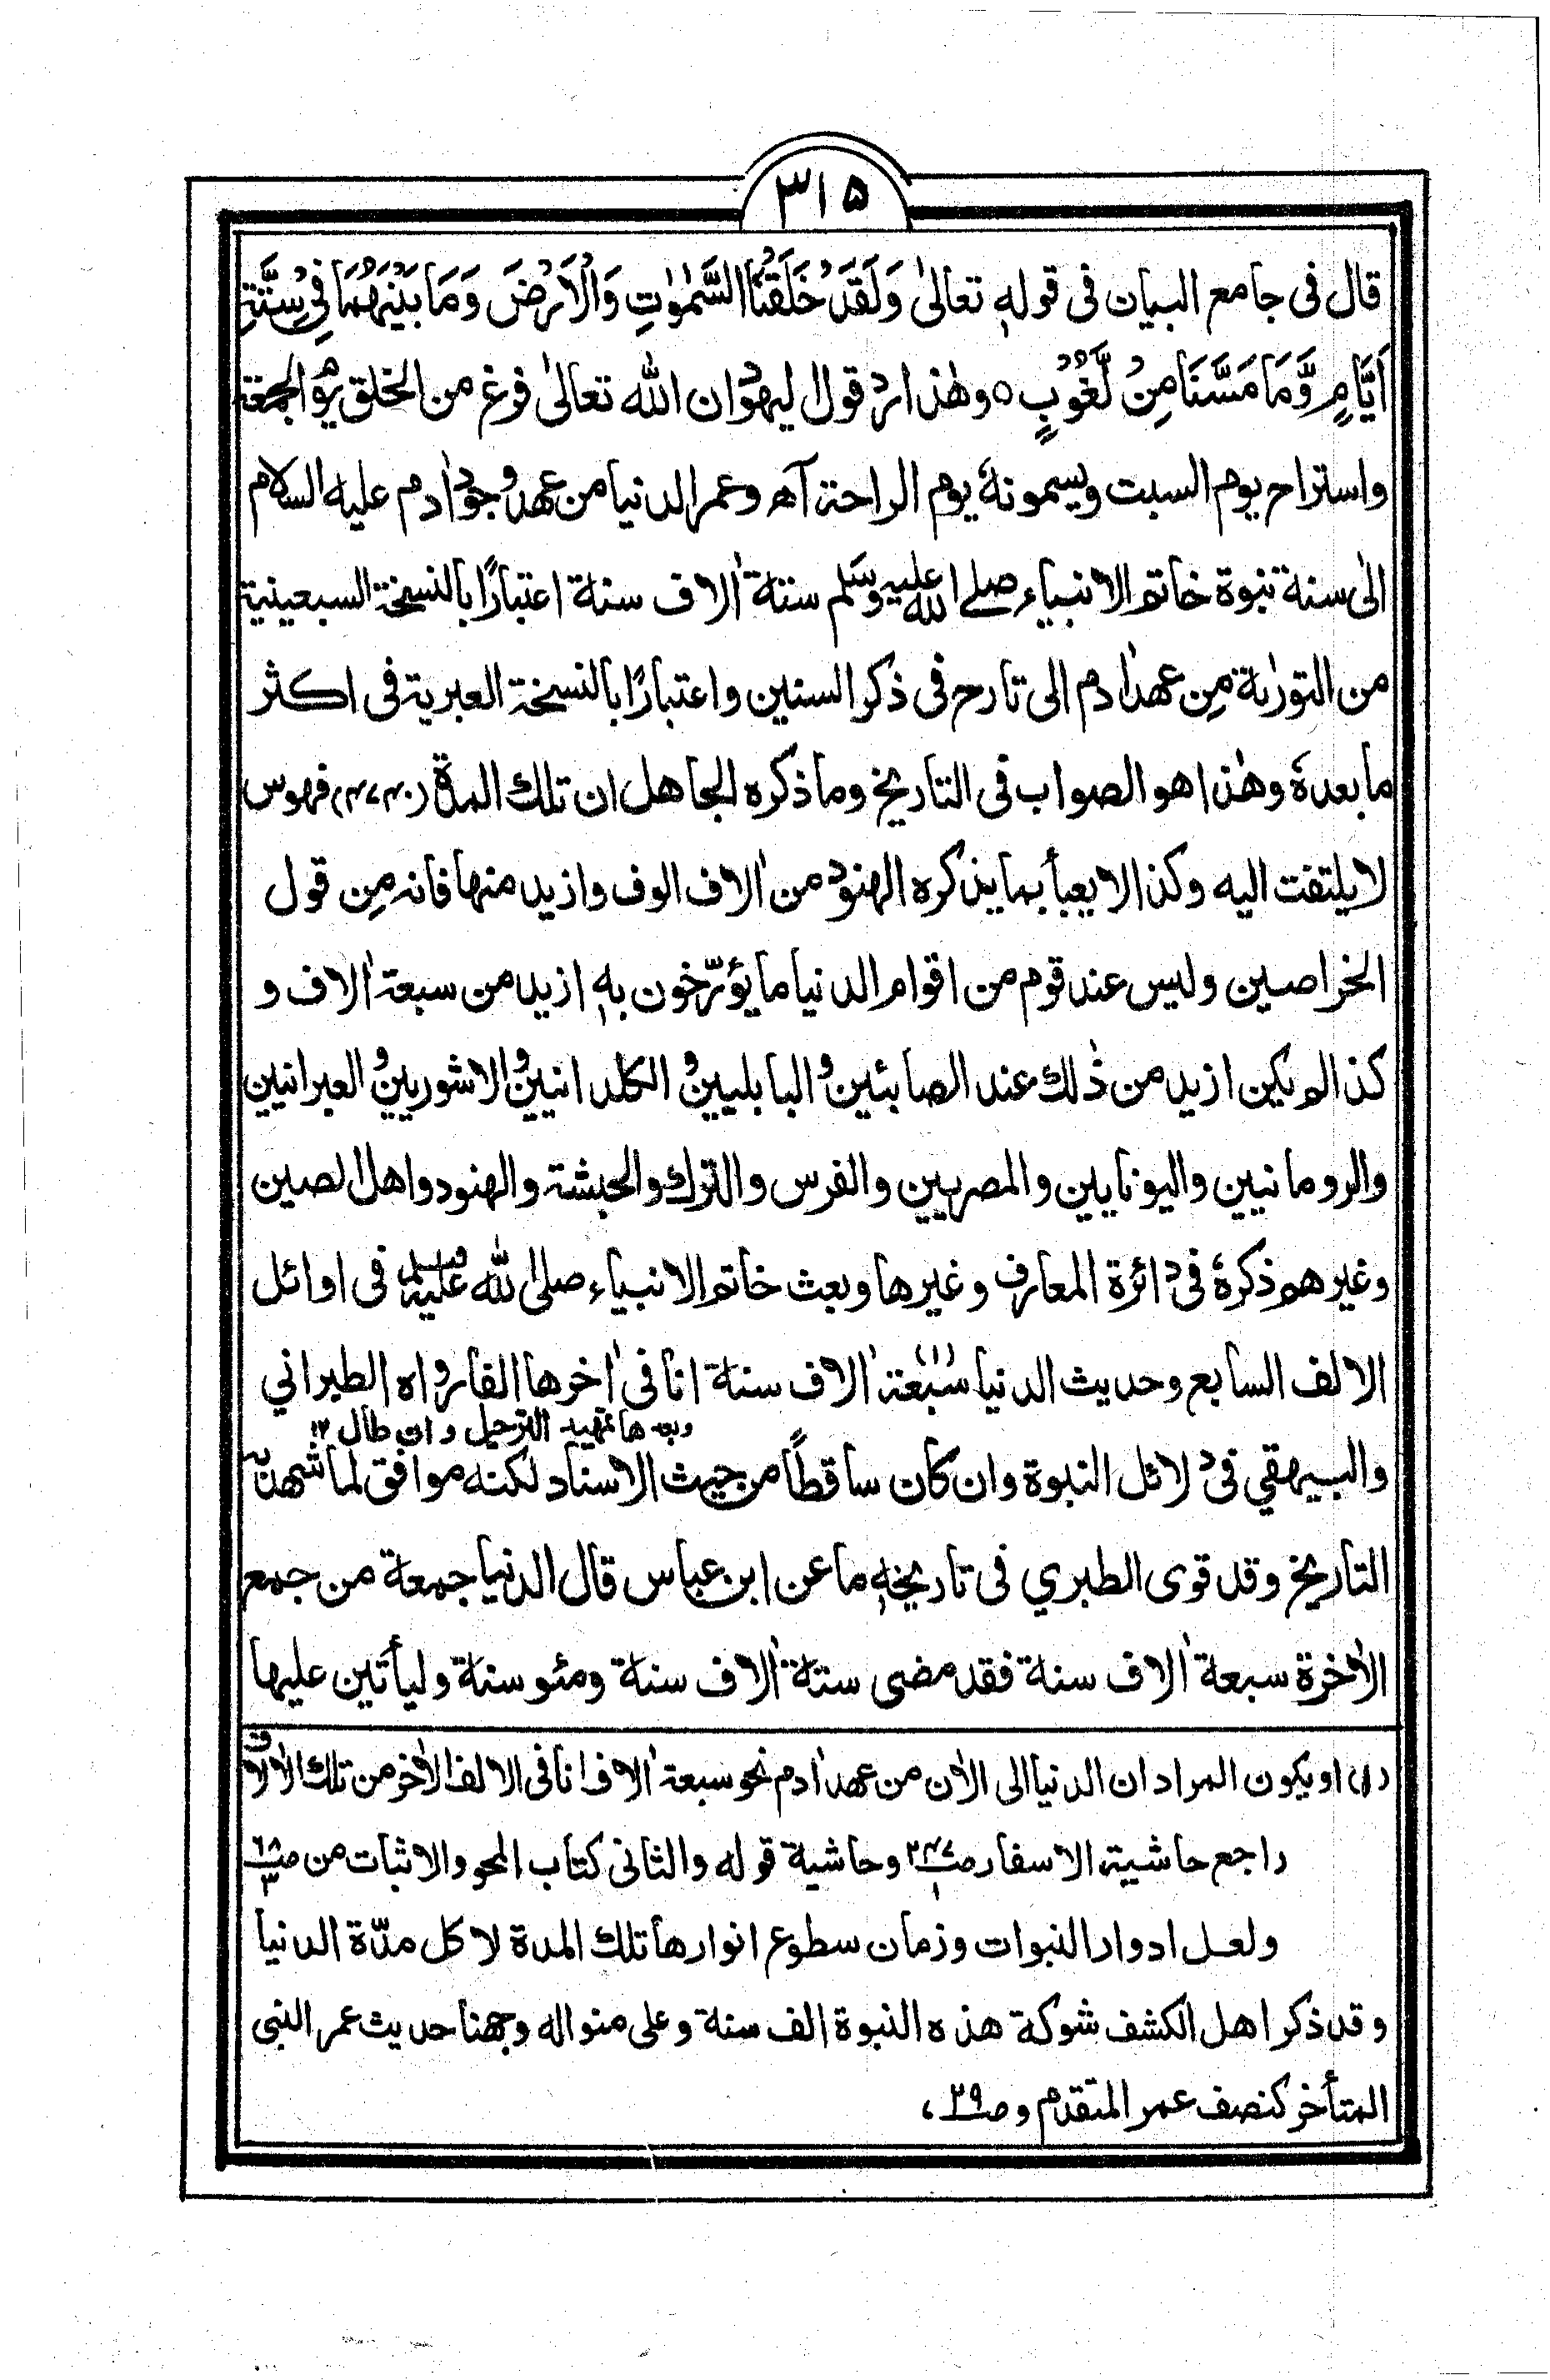 ٣١٥
قال فى جامع البيان فى قولهٖ تعالىٰ وَلَقَدْ خَلَقْنَا السَّمٰوٰتِ وَالْاَرْضَ وَمَا بَيْنَهُمَا فِىْ سِتَّةِ
اَيَّامٍ وَّمَا مَسَّنَا مِنْ لُّغُوْبٍ ٥ وهٰذا رد قول اليهود ان الله تعالىٰ فرغ من الخلق يوم الجمعة
واستراح يوم السبت ويسمونهٗ يوم الراحة اٰه وعمر الدنيا من عهد وجود اٰدم عليه السلام
الىٰ سنة نبوة خاتم الانبياء صلى الله عليه وسلم ستة اٰلاف سنة اعتبارًا بالنسخة السبعينية
من التورٰىة مِن عهد اٰدم الى تارح فى ذكر السنين واعتبارًا بالنسخة العبرية فى اكثر
ما بعدهٗ وهٰذا هو الصواب فى التاريخ وما ذكره الجاهل ان تلك المدة (٤٧٤٠) فهوس
لا يلتفت اليه وكذا لا يعبأ بما يذكره الهنود من اٰلاف الوف وازيد منها فانه مِن قول
الخراصين وليس عند قوم من اقوام الدنيا ما يؤرّخون بهٖ ازيد من سبعة اٰلاف و
كذا لم يكن ازيد من ذٰلك عند الصابئين و البابليين و الكلدانيين و الاشوريين و العبرانيين
والرومانيين واليونايين والمصريين والفرس والترك والحبشة والهنود واهل الصين
وغيرهم ذكرهٗ فى دائرة المعارف وغيرها وبعث خاتم الانبياء صلى الله عليه وسلم فى اوائل
الالف السابع وحديث الدنيا سبعة (١) اٰلاف سنة انا فى اٰخرها الفا رواه الطبراني
وبعد هٰا تمهيد الترحيل وان طال ١٢
والبيهقي فى دلائل النبوة وان كان ساقطًا من حيث الاسناد لكنه موافق لما شهد به
التاريخ وقد قوى الطبري فى تاريخهٖ ما عن ابن عباس قال الدنيا جمعة من جمع
الاٰخرة سبعة اٰلاف سنة فقد مضى ستة اٰلاف سنة ومئو سنة وليأتين عليها
(١) او يكون المراد ان الدنيا الى الاٰن من عهد اٰدم نحو سبعة اٰلاف انا فى الالف الاٰخر من تلك الاٰلاف
راجع حاشية الاسفار ص٣٤٧/١ وحاشية قوله والثانى كتاب المحو والاثبات من ص٦٨/٣
ولعل ادوار النبوات وزمان سطوع انوارها تلك المدة لا كل مدّة الدنيا
وقد ذكر اهل الكشف شوكة هذه النبوة الف سنة وعلى منواله وجهنا حديث عمر النبى
المتأخر كنصف عمر المتقدم وص٣٩،